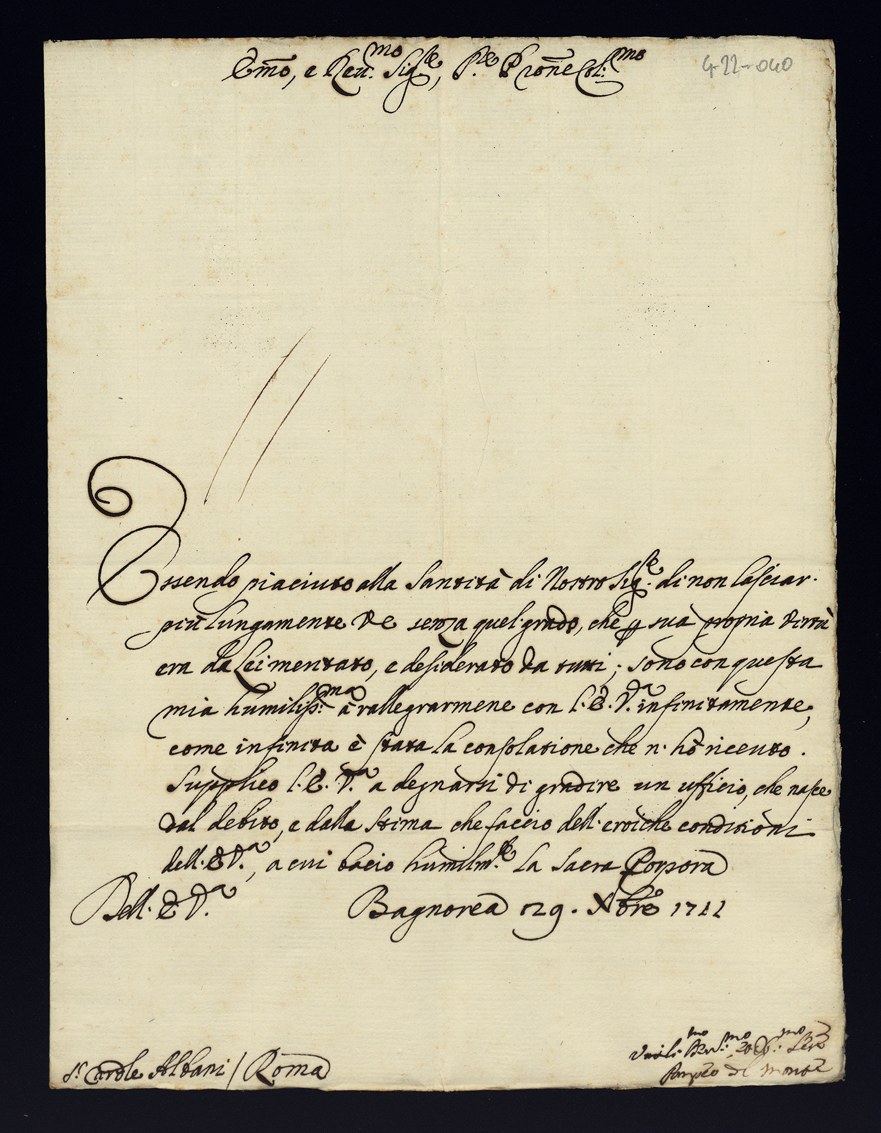 Em̃o, e Reu.mo Sig.re, P.re Pron̄e Col.mo
4-22-040
Essendo piaciuto alla Santità di Nostro Sig.re di non lasciar
più lungamente V.E. senza quel grado, che p sua propria virtù
era da Lei meritato, e desiderato da tutti; sono con questa
mia humiliss.ma à rallegrarmene con l.E.V.a infinitamente,
come infinita è stata la consolatione che n'hò riceuto.
Supplico l.E.V.a a degnarsi di gradire un ufficio, che nasce
dal debito, e dalla stima che faccio dell'eroiche conditioni
dell.E.V.a, a cui bacio humilm.te la Sacra Porpora
Dell.E.V.a Bagnorea 29. Xbre 1711
S.r Cardle Albani / Roma